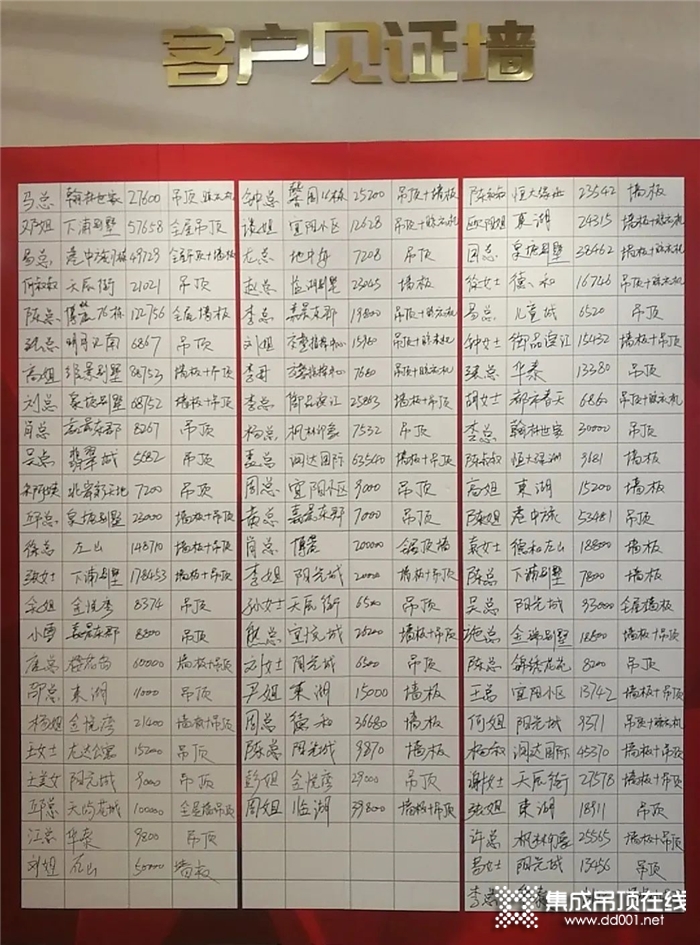 客户见证墙
马总 翰林世家 27600 吊顶
邓姐 下浦别墅 57658 全屋吊顶
易总 49729
何叔叔 天辰街 21021 吊顶
陈总 76栋 122756 全屋墙板
张总 明月江南 6867 吊顶
高姐 别墅 墙板+吊顶
刘总 别墅 68752 墙板+吊顶
肖总 嘉景东郡 8267 吊顶
吴总 翡翠城 5682 吊顶
7200 吊顶
邱总 别墅 23000 墙板+吊顶
徐总 左山 148710 墙板+吊顶
张女士 下浦别墅 178453 墙板+吊顶
余姐 金悦湾 8374 吊顶
小雪 嘉景东郡 8800 吊顶
唐总 60000 墙板+吊顶
邵总 東湖 11000 吊顶
杨姐 金悦湾 21400 墙板+吊顶
王女士 龙达公寓 15200 吊顶
王美女 阳光城 9000 吊顶
邱总 天尚龙城 100000
江总 华泰 9800 吊顶
刘姐 左山 50000 墙板
钟总 25200 吊顶+墙板
谈姐 宜阳小区 12628 吊顶+晾衣机
龙总 地中海 7208 吊顶
赵总 临湖别墅 23045 墙板
李总 嘉景东郡 19800 吊顶+晾衣机
刘姐 吊顶+晾衣机
李哥 7680 吊顶+晾衣机
李总 御品滨江 25863 墙板+吊顶
杨总 枫林印象 7532 吊顶
润达国际 63540 墙板+吊顶
周总 宜阳小区 9000 吊顶
黄总 嘉景东郡 7000 吊顶
肖总 200000
李姐 阳光城 墙板+吊顶
孙女士 天辰街 6500 吊顶
熊总 宜悦城 26200 墙板+吊顶
刘女士 阳光城 6500 吊顶
尹姐 東湖 15000 墙板
周总 德和 36680 墙板
陈总 阳光城 9870 墙板
彭姐 金悦湾 29000 吊顶
周姐 临湖 39800 墙板+吊顶
陈叔叔 恒大绿洲 23542 墙板
欧阳姐 東湖 24315 墙板+晾衣机
周总 别墅 38462 墙板+晾衣机
徐女士 德和 16746 吊顶+晾衣机
易总 儿童城 6520 吊顶
钟女士 御品滨江 15432 墙板+吊顶
张总 华泰 13380 吊顶
胡女士 都市春天 6860 吊顶+晾衣机
李总 翰林世家 30000 吊顶
陈叔叔 恒大绿洲 9681 墙板
高姐 東湖 15200 墙板
陈姐 53481 吊顶
袁女士 德和左山 18800 墙板
陈总 下浦别墅 7800 墙板
吴总 阳光城 93000 全屋墙板
施总 金瑞别墅 18500 墙板+吊顶
陈总 锦绣龙苑 8200 吊顶
王总 宜阳小区 13742 墙板+吊顶
何姐 阳光城 9371 吊顶+晾衣机
杨叔 润达国际 45370 墙板+吊顶
谢女士 天辰街 27578 墙板+吊顶
张姐 東湖 18911 吊顶
许总 枫林印象 25565 墙板+吊顶
吕女士 阳光城 13456 吊顶
李总
集成吊顶在线
www.dd001.net